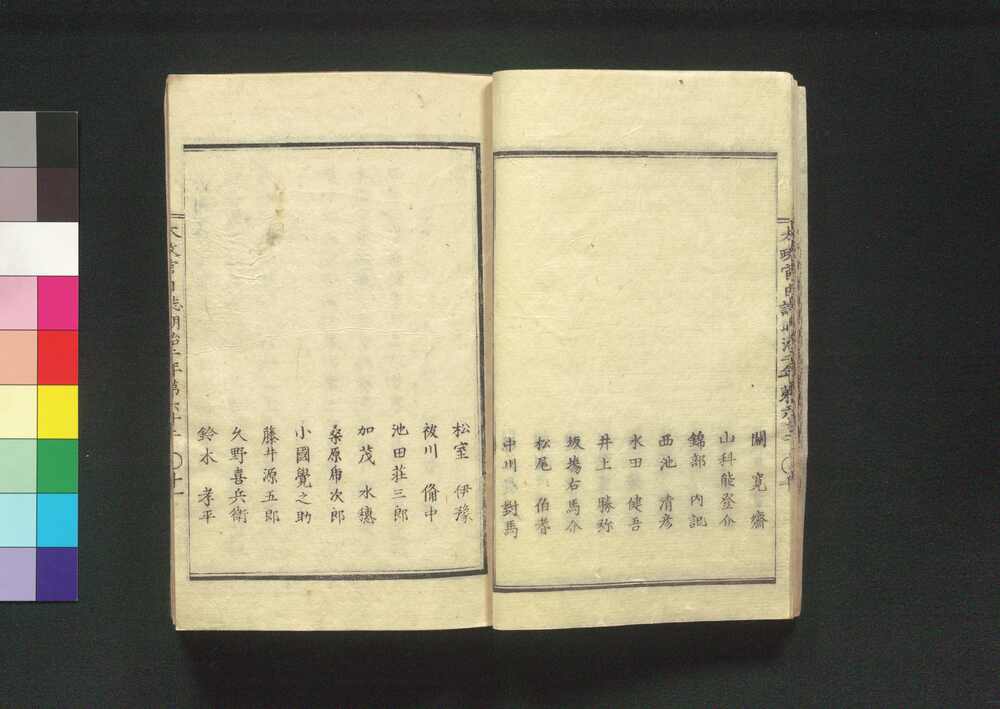 關寛齋
山科能登介
錦部内記
西池清彦
水田健吾
井上勝弥
坂場右馬介
松尾伯耆
中川對馬
太政官日誌明治二年第六十二〇十
松室伊豫
祓川備中
池田莊三郎
加茂水穗
桑原庸次郎
小國覺之助
藤井源五郎
久野喜兵衛
鈴木孝平
太政官日誌明治二年第六十二〇十一